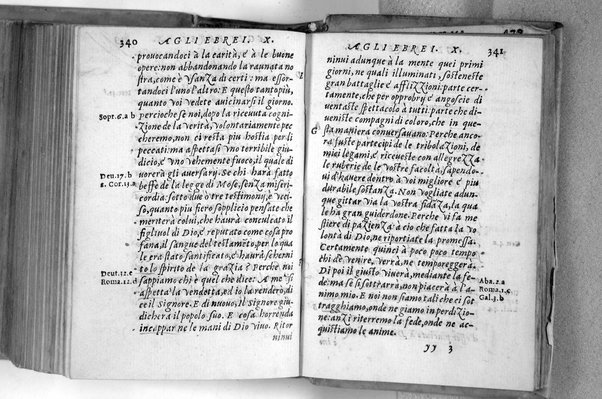 340 AGLI EBREI. X.
provocandoci à la carità, e à le buone
opere: non abbandonando la raunata no
stra, come è usanza di certi: ma essor-
tandoci l'uno l'altro: E questo tanto più,
quanto voi vedete avicinarsi il giorno.
Sopt. 6. a b
percioche se noi, dopo la ricevuta cogni-
zione de la verità, volontariamente pec
cheremo, non ci resta piu hostia per li
peccati: ma aspettasi uno terribile giu-
dicio, e uno vehemente fuoco, il quale di
Deu. 17. b
vorerà gli aversarij. Se chi harà fatto
2. Cor. 13. a
beffe de la legge di Mose, senza miseri-
cordia sotto due ò tre testimonij, è ucci-
so, quanto piu fiero sopplicio pensate che
meriterà colui, che haurà conculcato il
figliuol di Dio, e reputato come cosa pro
fana, il sangue del testamẽto, per lo qua
le era stato santificato, e haurà scherni
Deut. 12. e
to lo spirito de la grazia? Perche noi
Roma. 12. d
sappiamo chi è quel che dice: A me si
aspetta la vendetta, e io la renderò, di
ce il Signore. E di nuovo, il Signore giu-
dicherà il popolo suo. E cosa horrenda
incappar ne le mani di Dio vivo. Ritor
ninui
AGLI EBREI. X. 341
ninui adunque à la mente quei primi
giorni, ne quali illuminati, sosteneste
gran battaglie d'afflizzioni: parte cer-
tamente, che per opprobrij e angoscie di
ventaste spettacolo à tutti: parte che di-
veniste compagni di coloro, che in que-
sta maniera conversavano: Perche anco-
ra fuste partecipi de le tribolazioni, de
miei legami, e riceveste con allegrezza
le ruberie de le vostre facoltà, sapendo
vi d'havere dentro à voi migliore e piu
durabile sostanza. Non vogliate adun-
que gittar via la vostra fidāza, la qua
le ha gran guiderdone. Perche vi fa me
stiere di pazienza: à cio che fatta la vo
lontà di Dio, ne riportiate la promessa.
Certamente quinci à poco poco tempo
chi de venire, verrà, ne temporeggerà.
Di poi il giusto viverà, mediante la fe-
Aba. 2. a
de: ma se si sottrarrà, non piacerà à l'a-
Roma. 1. b
nimo mio. E noi non siamo tali che ci sot
Gal. 3. b
tragghiamo, onde ne giamo in perdizio-
ne: anzi riterremo la fede, onde ne ac-
quistiamo le anime.
II 3